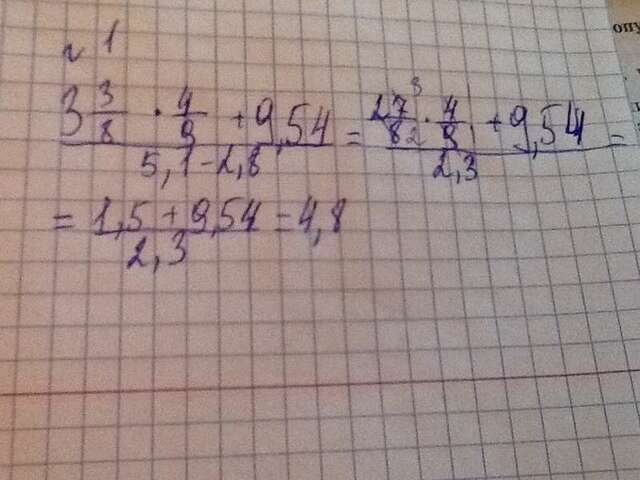 № 1
3 3/8 · 4/9 + 9,54 / 5,1 - 2,8 = 27 3/8 2 · 4/9 1 + 9,54 / 2,3 =
= 1,5 + 9,54 / 2,3 = 4,8
опу